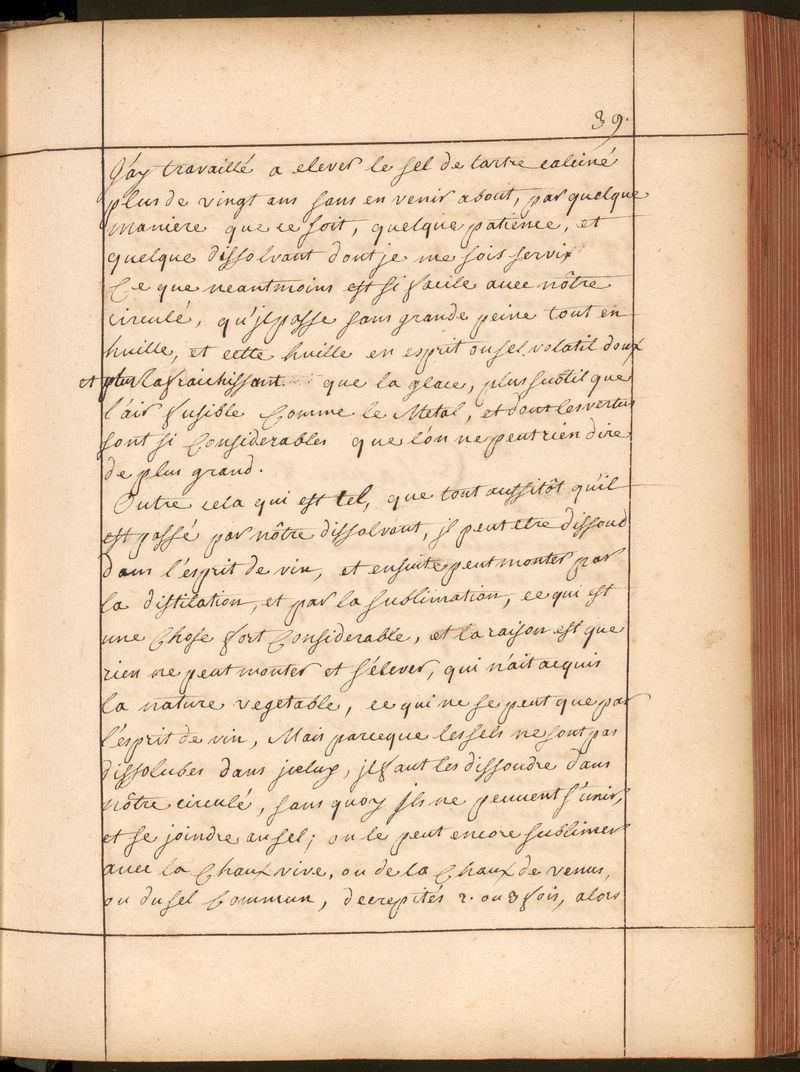 39.
J'ay travaillé a elever le sel de tartre calciné
plus de vingt ans sans en venir about, par quelque
maniere que ce soit, quelque patience, et
quelque dissolvant dont je me sois servir
Ce que neantmoins est si facile avec nôtre
circulé, qu'jl passe sans grande peine tout en
huille, et cette huille en esprit ou sel volatil doux
et plus rafraichissant que la glace, plus subtil que
l'air fusible Comme le Metal, et dont les vertus
sont si Considerables que l'on ne peut rien dire
de plus grand.
Outre cela qui est tel, que tout aussitôt qu'il
est passé par nôtre dissolvant, jl peut etre dissoud
dans l'esprit de vin, et ensuite peut monter par
la distilation, et par la sublimation, ce qui est
une Chose fort Considerable, et la raison est que
rien ne peut monter et s'élever, qui n'ait acquis
la nature vegetable, ce qui ne se peut que par
l'esprit de vin, Mais parceque les sels ne sont pas
dissolubes dans jceluy, jl faut les dissoudre dans
nôtre circulé, sans quoy jls ne peuvent s'unir,
et se joindre au sel; on le peut encore sublimer
avec la Chaux vive, ou de la Chaux de venus,
ou du sel Commun, decrepités 2. ou 3 fois, alors